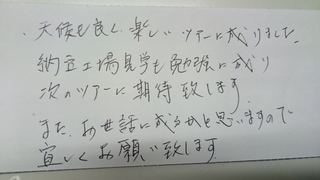 天候も良く楽しいツアーに成りました。
納豆工場見学も勉強に成り
次のツアーに期待致します
また、お世話に成るかと思いますので
宜しくお願い致します